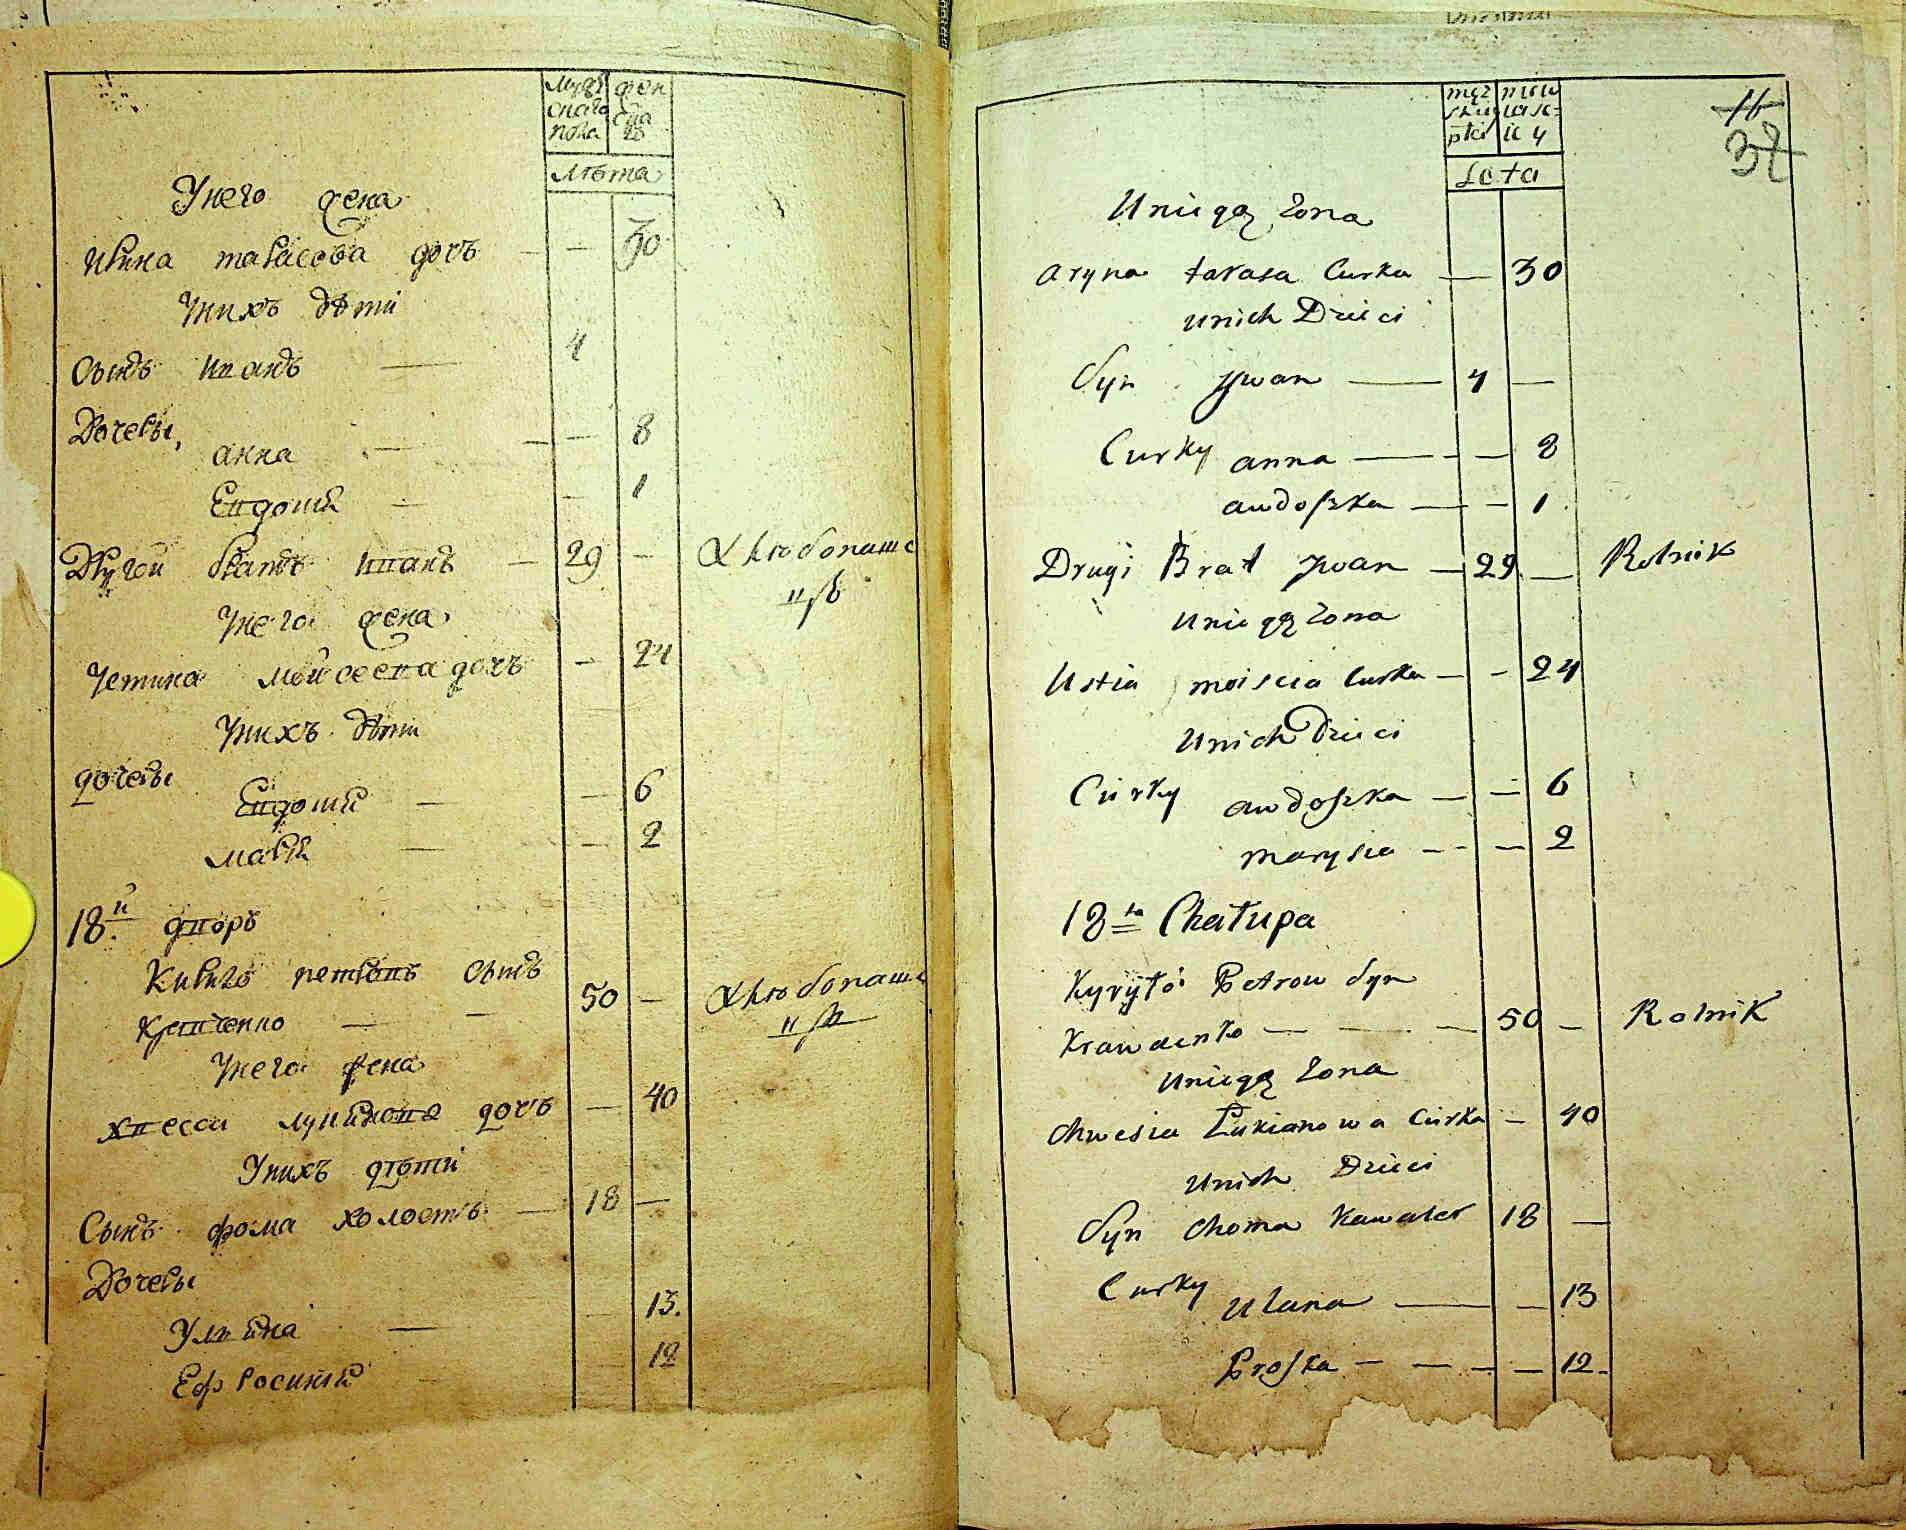 Мужескаго пола
Женскаго
Лѣта
У него жена
Ирина тарасова дочъ — 30
У нихъ дѣти
Сынъ иванъ — 4
Дочери,
анна — — 8
Евдокій — — 1
Другой братъ иванъ — 29 — Хлѣбопаше
цъ
У него жена
Устина мойсеева дочъ — 24
У нихъ дѣти
дочери
Евдокій — — 6
Марій — — 2
18.й дворъ
Кирило петровъ сынъ
Кравченко — — 50 — Хлѣбопаше
цъ
У него жена
хвеся лукіянова дочъ — 40
У нихъ дѣти
Сынъ фома холостъ — 18 —
Дочери
Уліяна — 13.
Ефросиній 12
męzskiey płci
Lata
16
37
U niego żona
Aryna tarasa Curka — 30
u nich Dzieci
Syn Jwan — 4 —
Curky anna — — 8
awdoszka — — 1
Drugi Brat Jwan — 29 — Rolnik
U niego żona
Ustia moiseia Curka — - 24
U nich Dzieci
Curky awdoszka — — 6
marysia — — 2
18ta Chałupa
Kyryło Petrow Syn
Krawczenko — — — 50 — Rolnik
U niego żona
Chwesia Łukianowa Curka — 40
U nich Dzieci
Syn Choma Kawaler 18 —
Curky
Ulana — — 13
Proska — — — — 12.